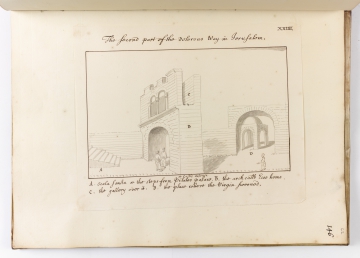 XXIIII.
The second part of the dolorous Way in Jerusalem.
C
B
A
D
A. scala santa or the steps from Pilates palace. B. the arch calld Ecce homo.
C. the gallery over it. D. the place where the Virgin swooned.